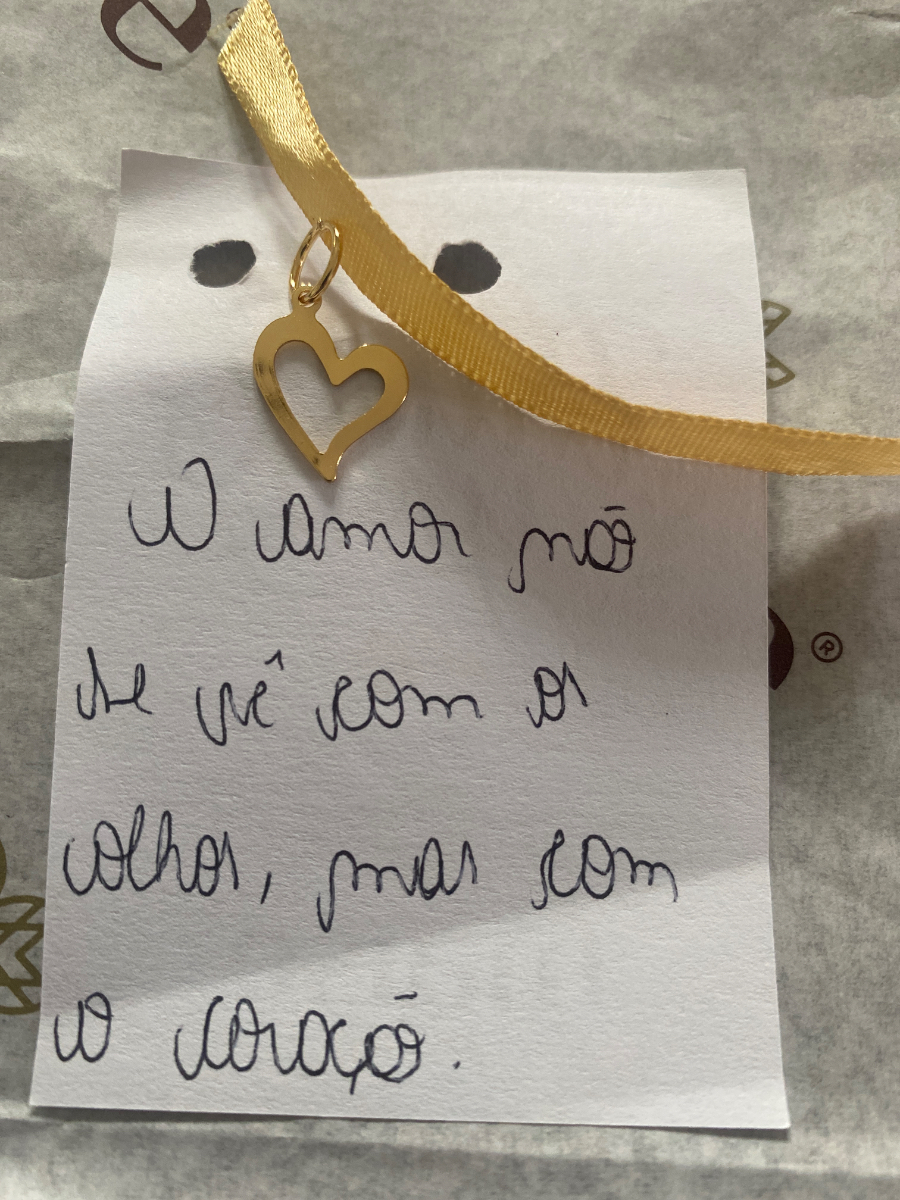 O amor não
se vê com os
olhos, mas com
o coração.
®